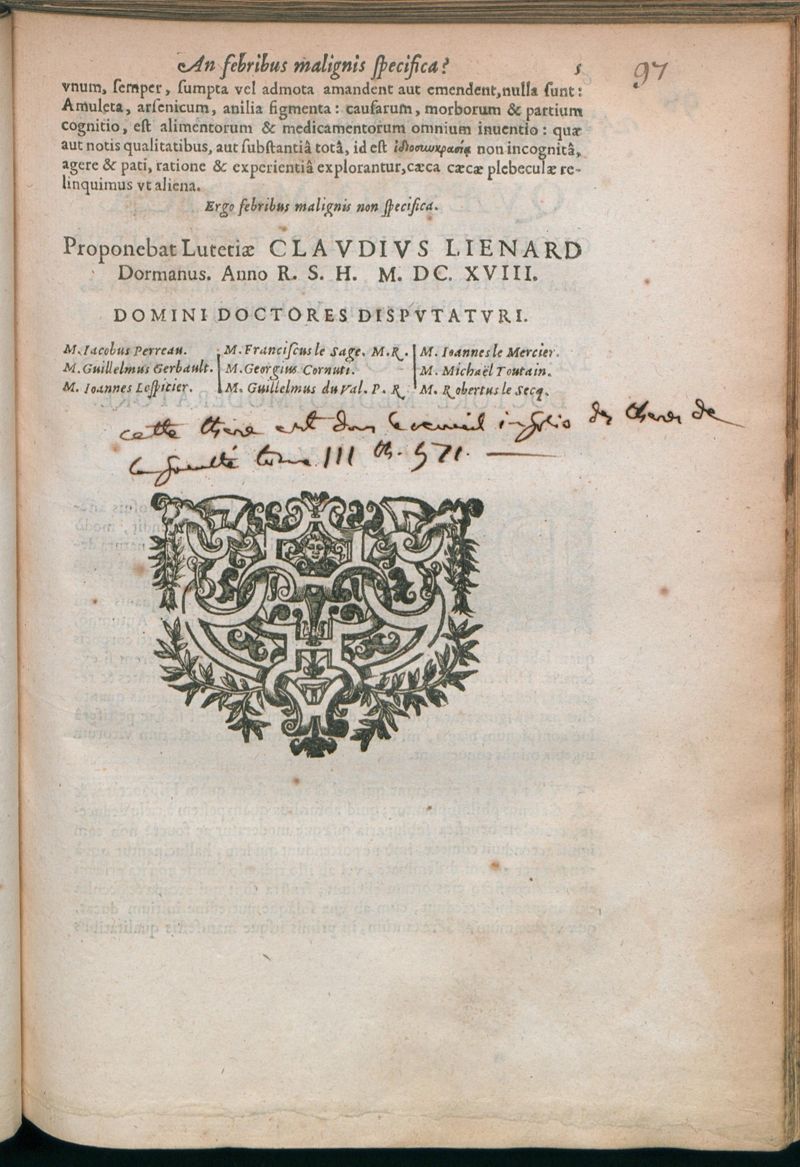 An febribus malignis specifica? 5
97
vnum, semper, sumpta vel admota amandent aut emendent, nulla sunt:
Amuleta, arsenicum, anilia figmenta: causarum, morborum & partium
cognitio, est alimentorum & medicamentorum omnium inuentio: quæ
aut notis qualitatibus, aut substantiâ totâ, id est ἰδιοσυγκρασίᾳ non incognitâ,
agere & pati, ratione & experientiâ explorantur, cæca cæcæ plebeculæ re-
linquimus vt aliena.
Ergo febribus malignis non specifica.
Proponebat Lutetiæ CLAVDIVS LIENARD
Dormanus. Anno R. S. H. M. DC. XVIII.
DOMINI DOCTORES DISPVTATVRI.
M. Iacobus Perreau. M. Franciscus le Sage. M.R. M. Ioannes le Mercier.
M. Guillelmus Gerbault. M. Georgius Cornuti. M. Michaël Toutain.
M. Ioannes Lespicier. M. Guillelmus du Val. P. R. M. Robertus le Secq.
cette these est dans le recueil in folio des theses de
la faculté tome III th. 571.